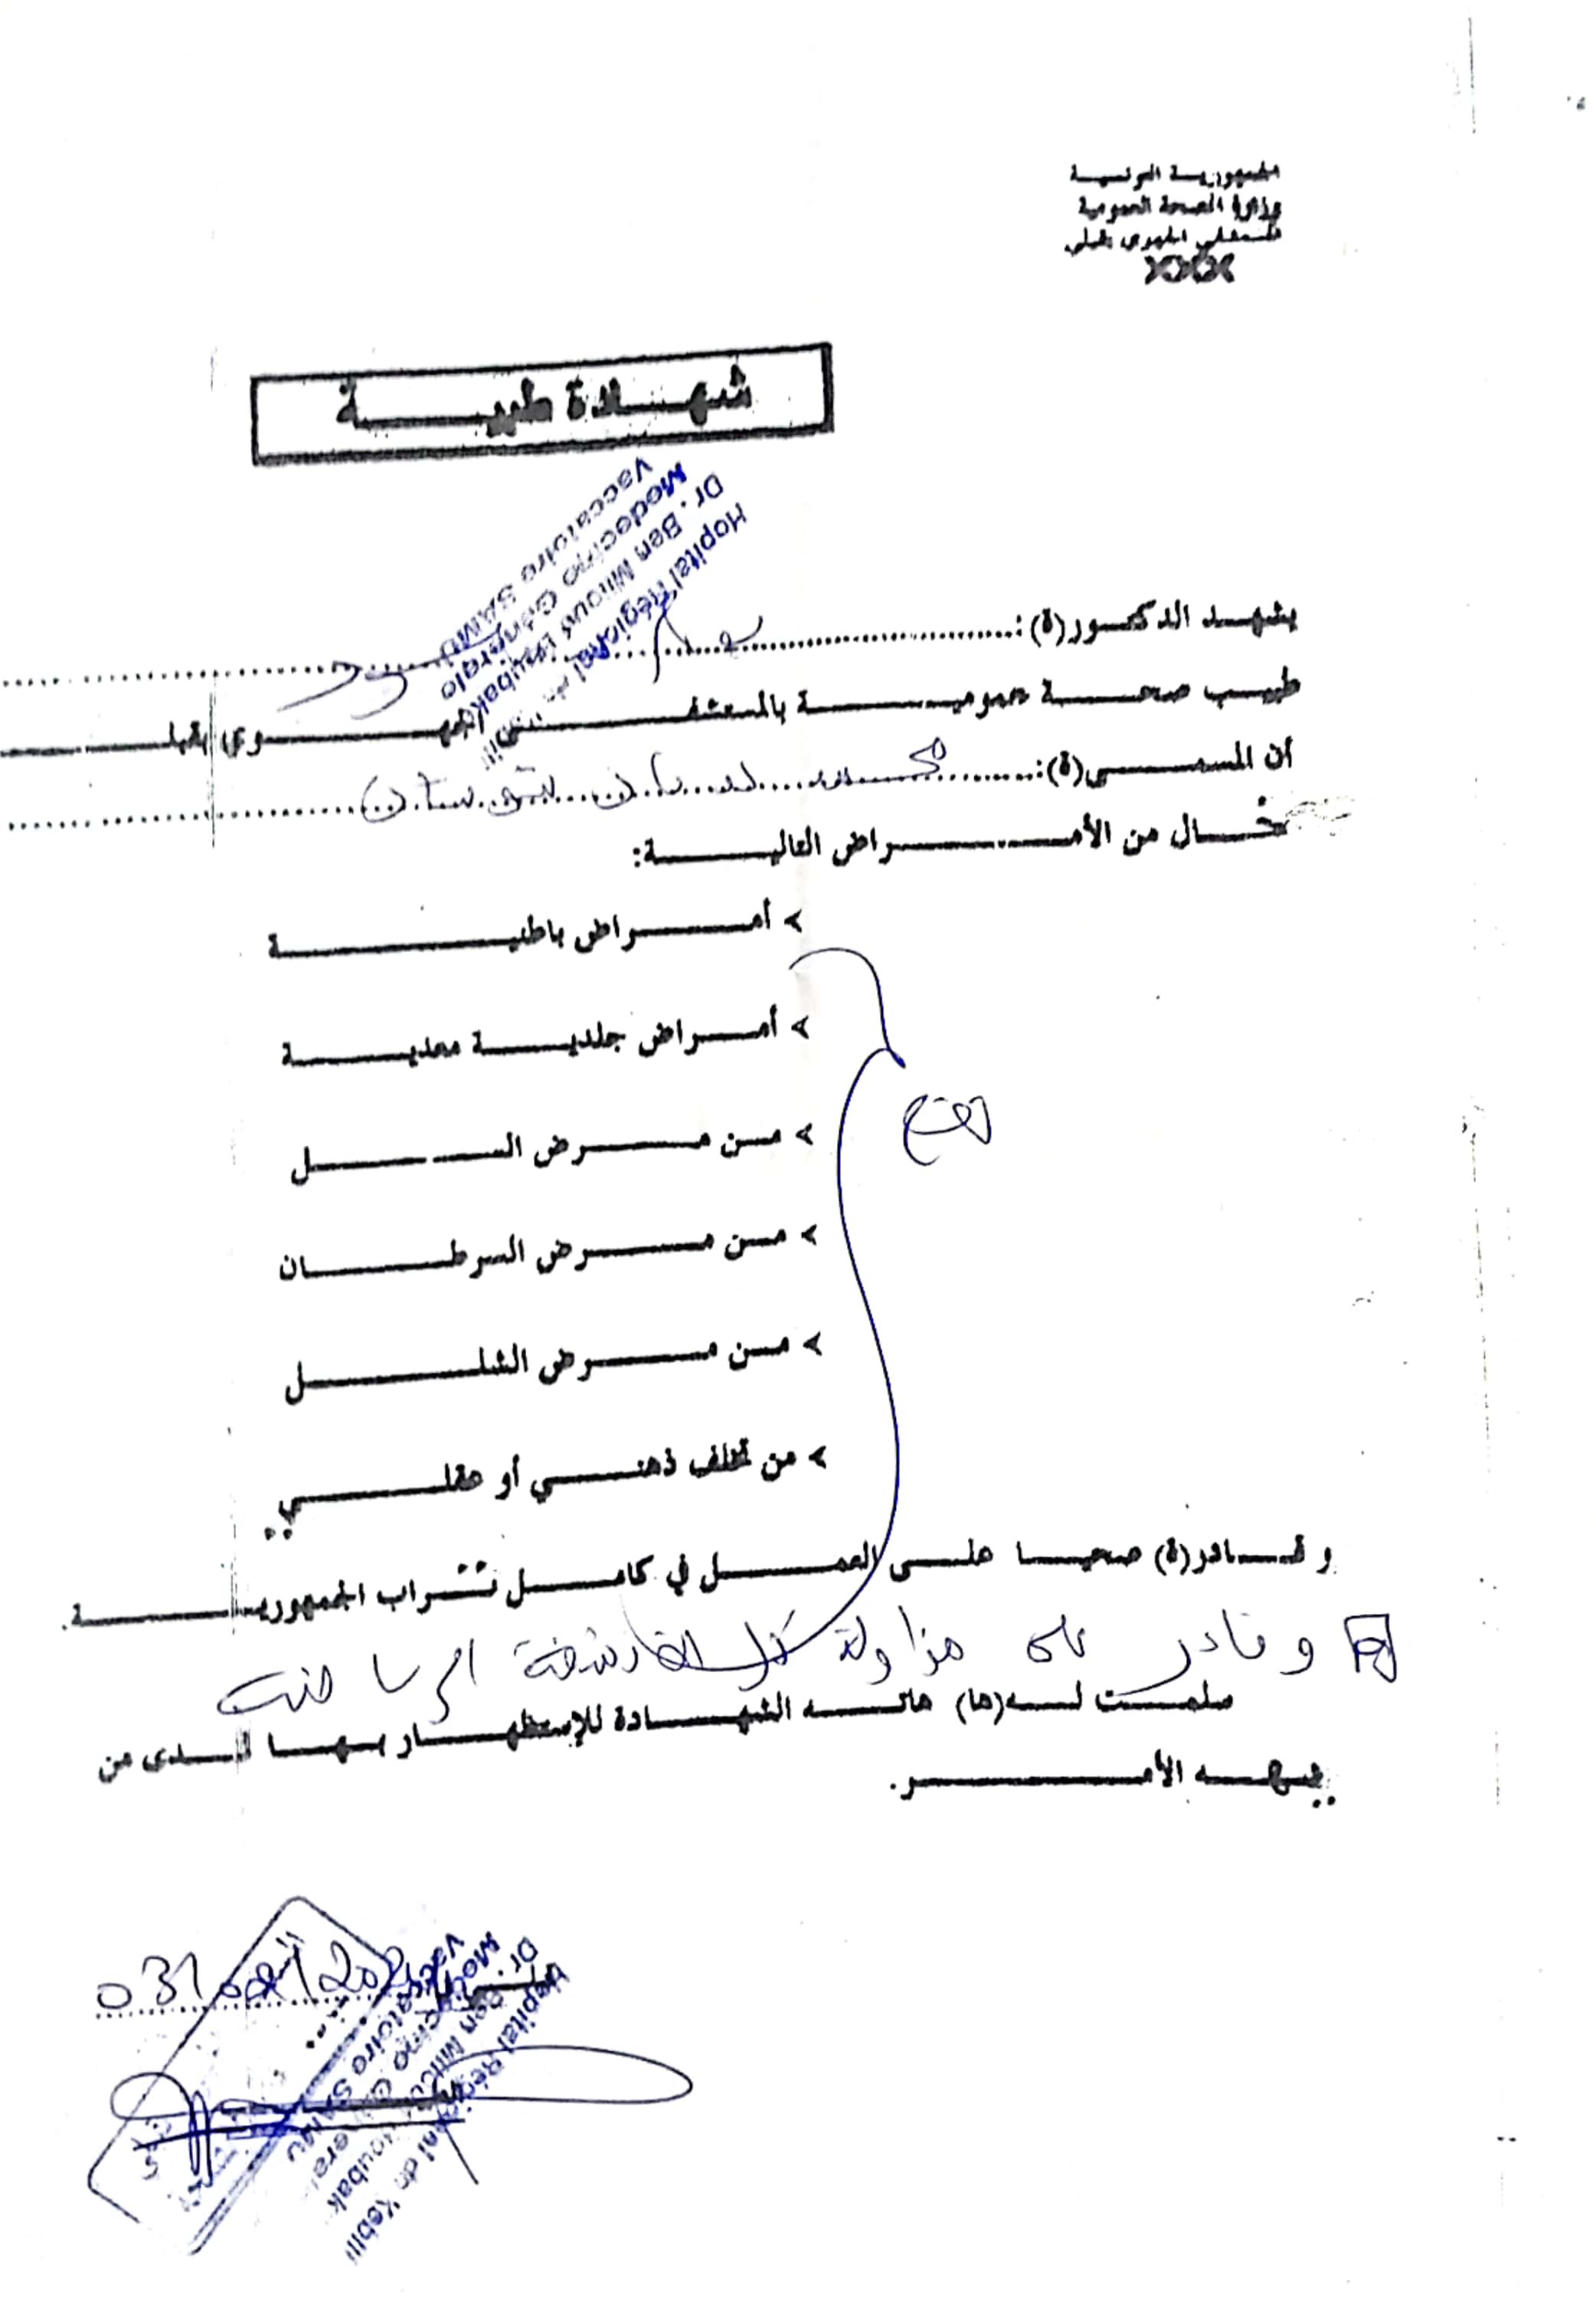 الجمهورية التونسية
وزارة الصحة العمومية
المستشفى الجهوي بقبلي
XXXX
شهادة طبية
Hopital Régional de Kebili
Dr. Ben
Medecine Générale
Vaccatoire SAMU
يشهد الدكتور(ة):
طبيب صحة عمومية بالمستشفى الجهوي بقبلي
أن المسمى(ة):
خال من الأمراض التالية:
> أمراض باطنية
> أمراض جلدية معدية
> من مرض السل
> من مرض السرطان
> من مرض الشلل
> من تخلف ذهني أو عقلي
و قادر(ة) صحيا على العمل في كامل تراب الجمهورية.
و قادر على مزاولة كل الأنشطة الرياضية
سلمت له(ها) هاته الشهادة للإستظهار بها لدى من
يهمه الأمر.
قبلي
Hopital Régional de Kebili
Dr. Ben
Medecine Générale
Vaccatoire SAMU